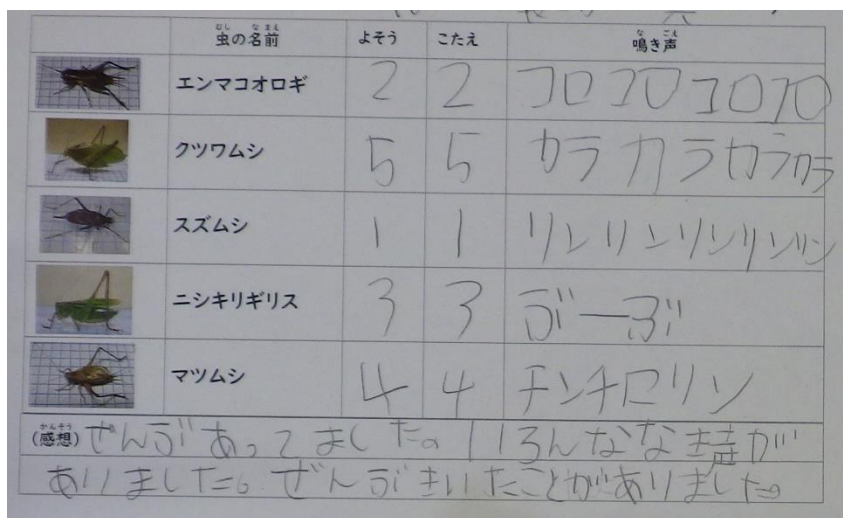 虫の名前 よそう こたえ 鳴き声
エンマコオロギ 2 2 コロコロコロコロ
クツワムシ 5 5 カラカラカラカラ
スズムシ 1 1 リンリンリンリンリン
ニシキリギリス 3 3 ぶーぶ
マツムシ 4 4 チンチロリン
(感想)ぜんぶあってました。いろんなな声が
ありました。ぜんぶきいたことがありました。